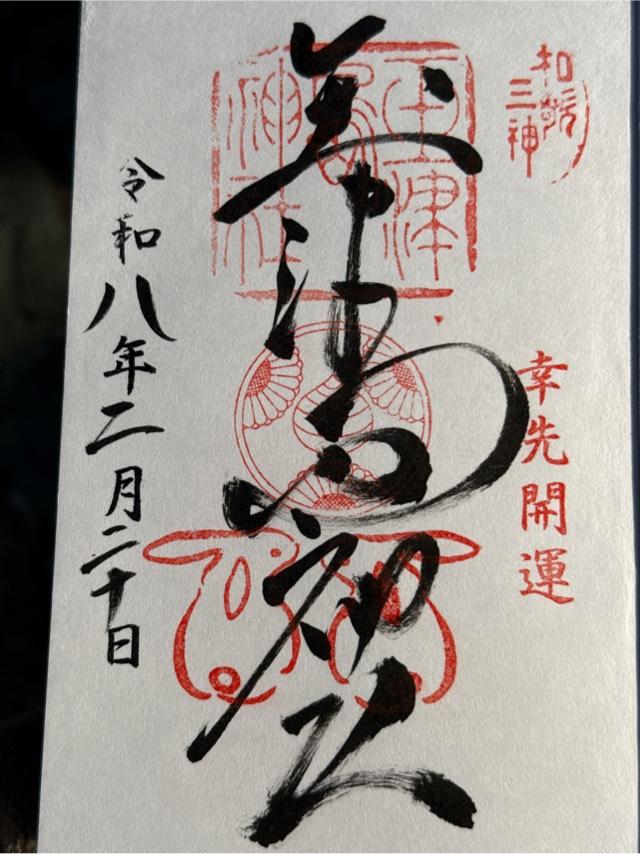 和歌三神
幸先開運
玉津島神社
玉津島神社
令和八年二月二十日